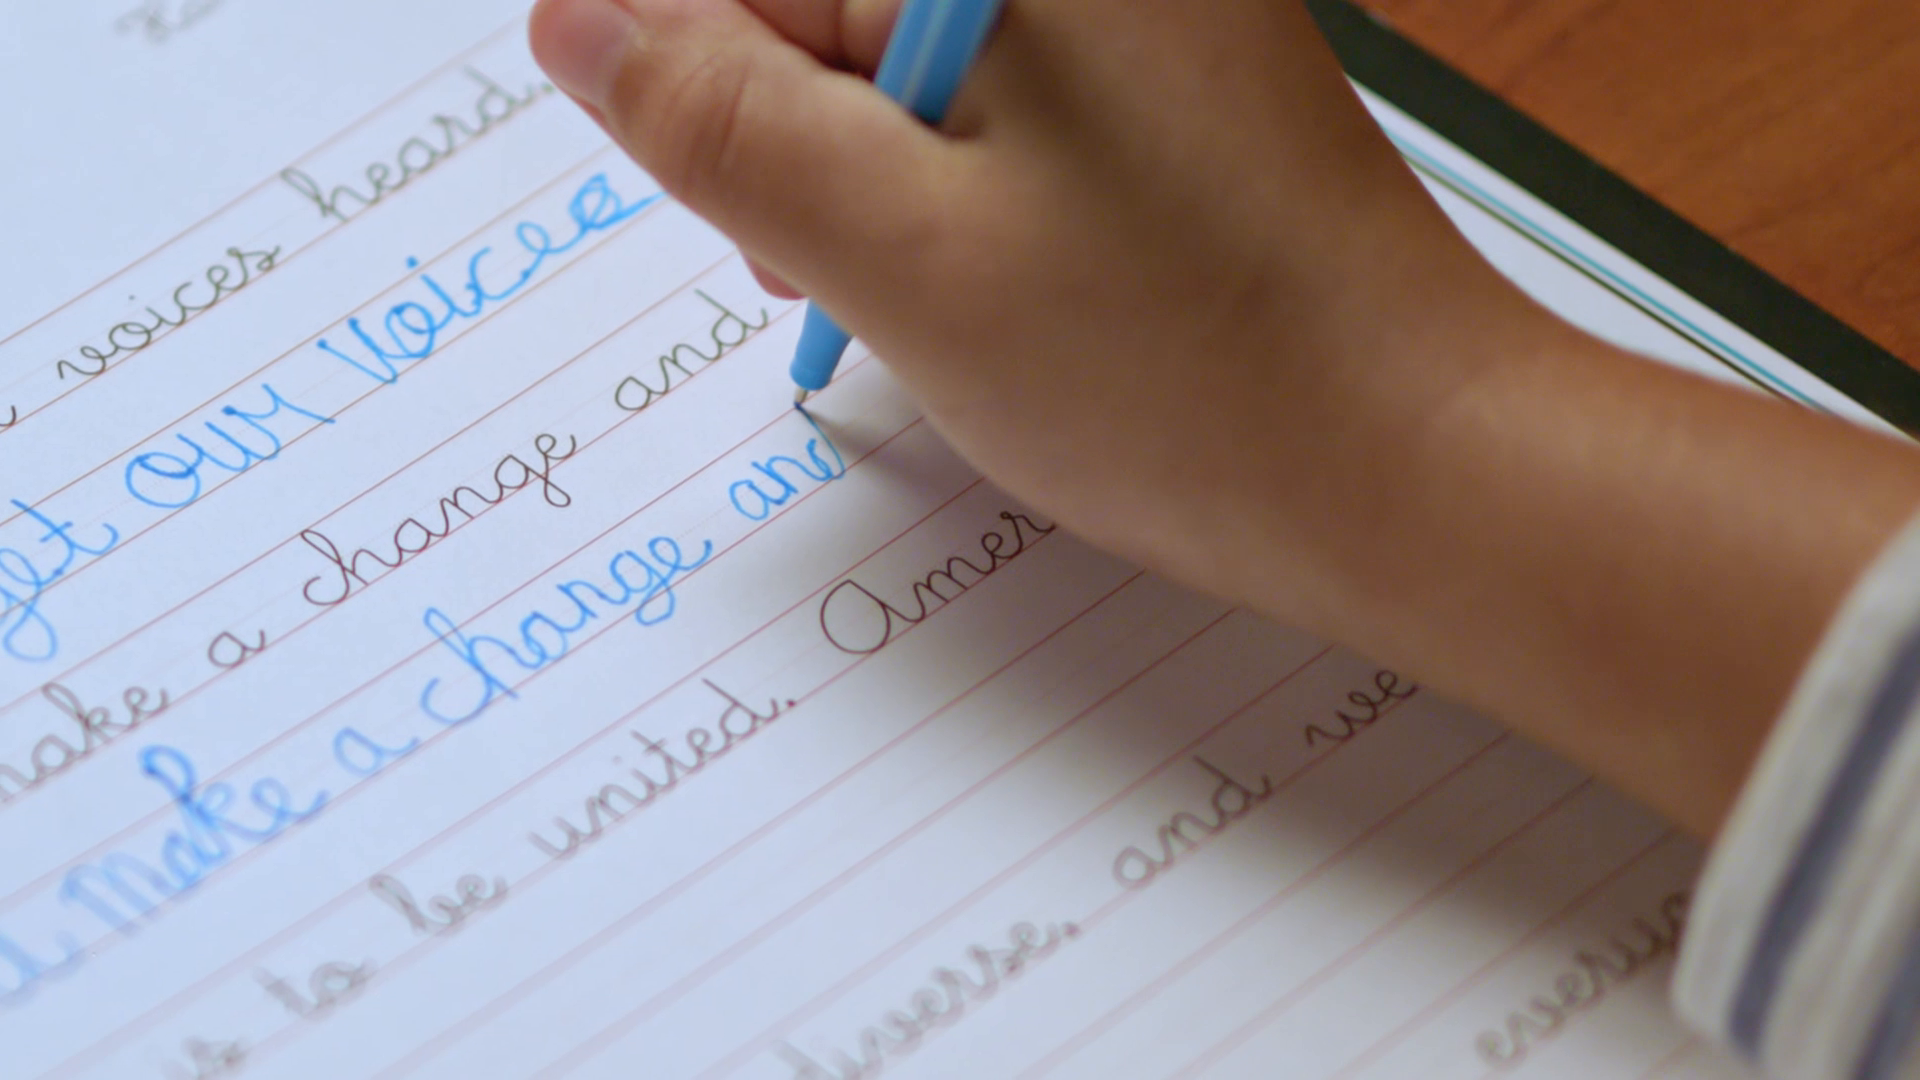 voices heard.
get our voices
make a change and
make a change and
is to be united. Amer
diverse, and we